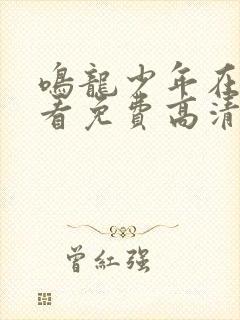 鳴龍少年在
看免費高清
曾紅强